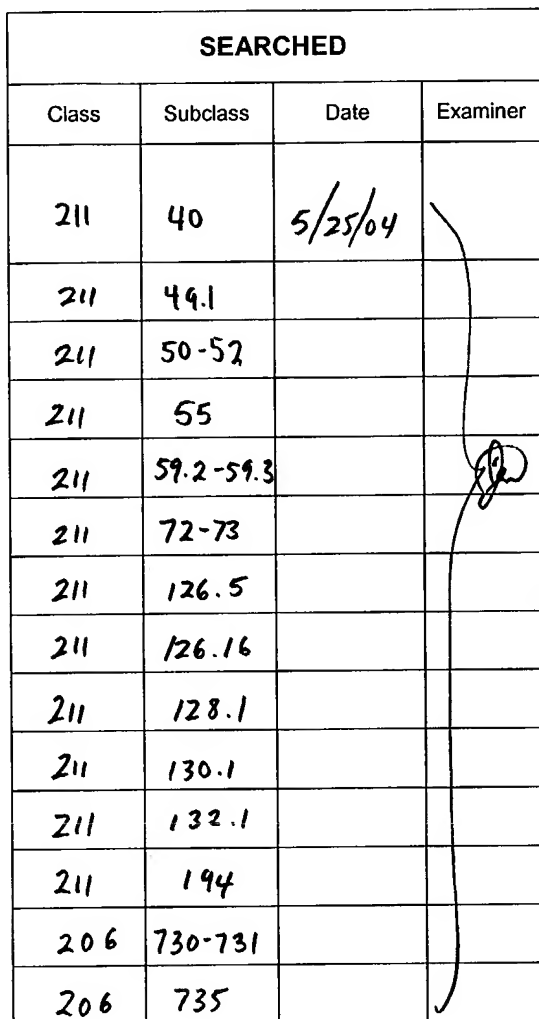 SEARCHED
Class Subclass Date Examiner
211 40 5/25/04
211 49.1
211 50-52
211 55
211 59.2-59.3
211 72-73
211 126.5
211 126.16
211 128.1
211 130.1
211 132.1
211 194
206 730-731
206 735